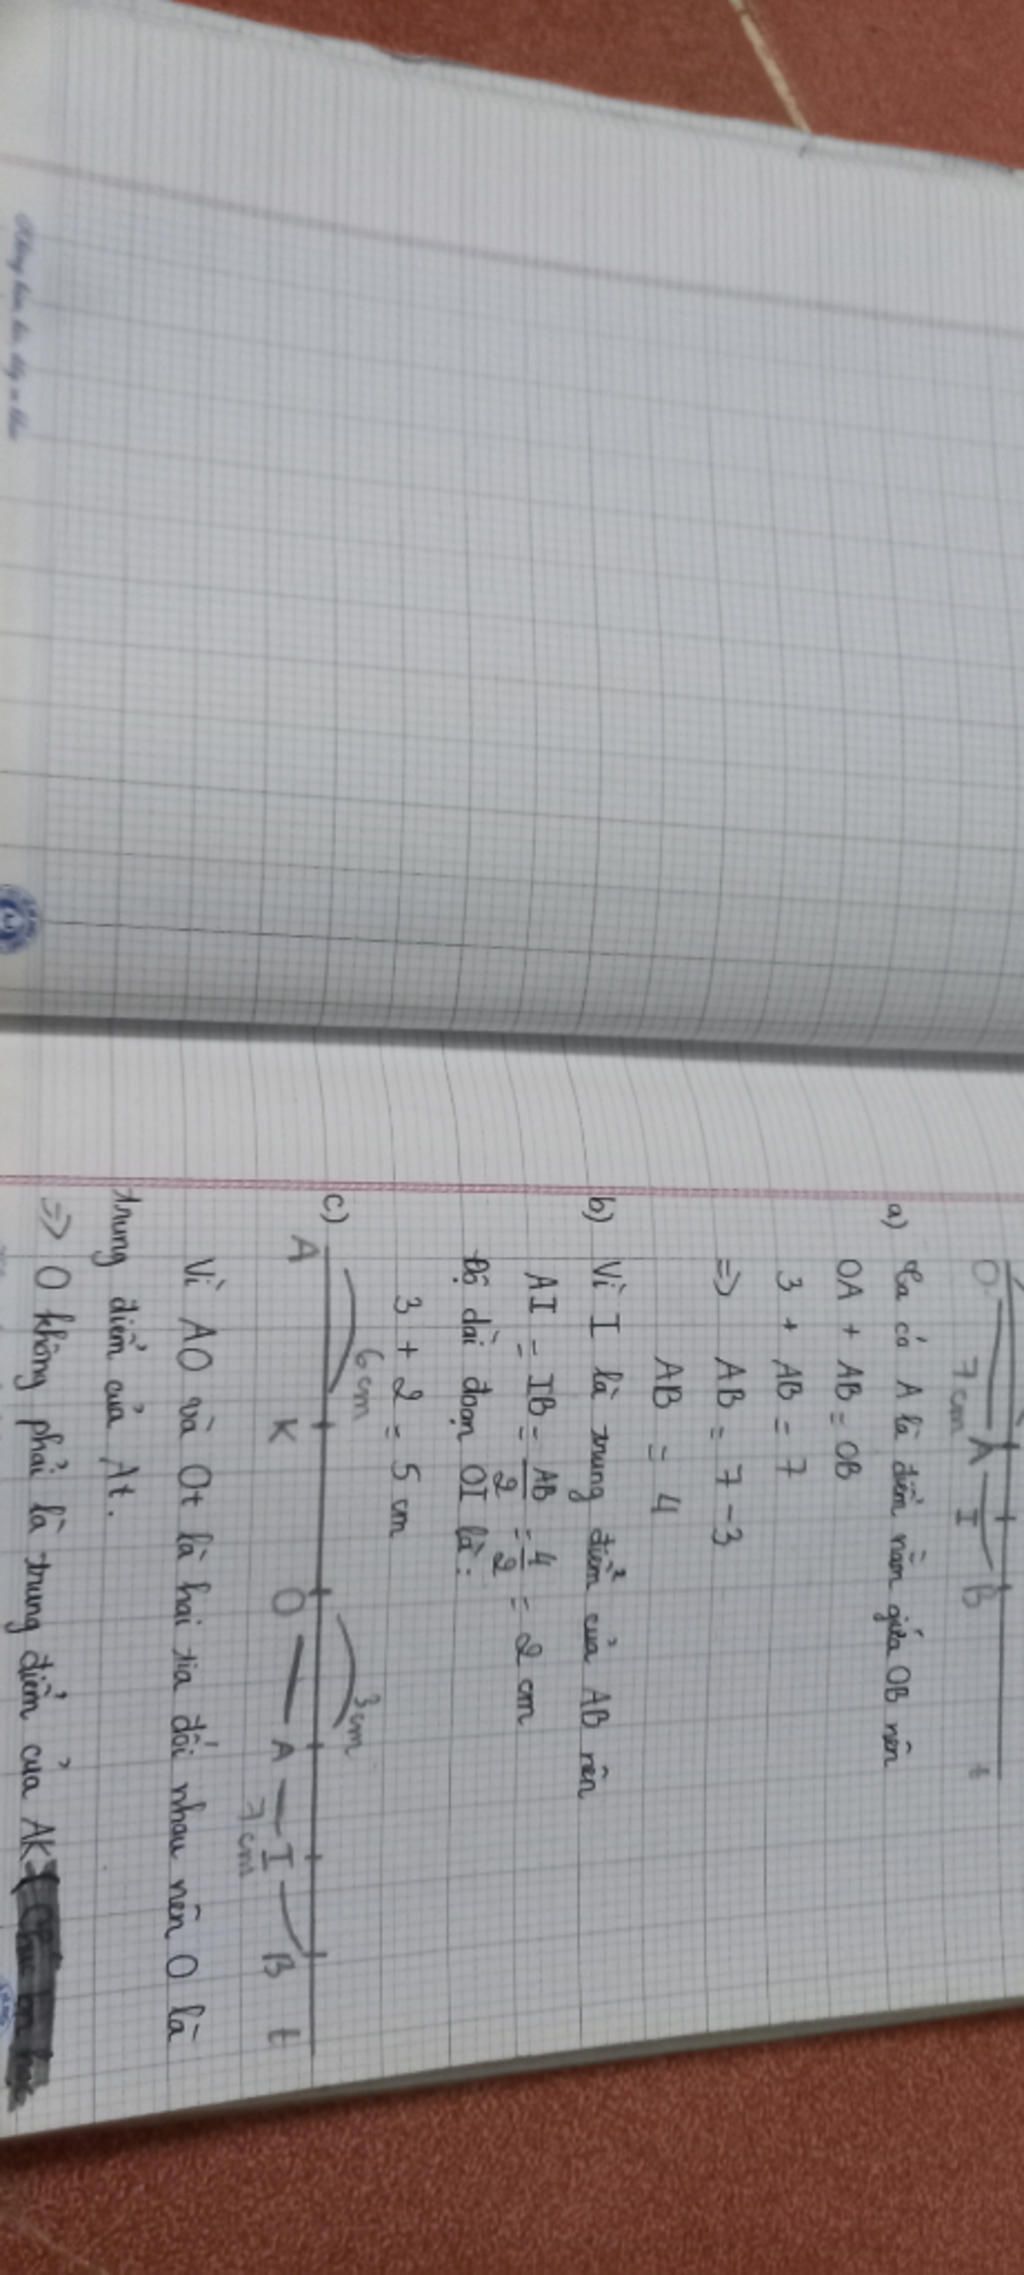 O A I B t
7 cm
a) Ta có A là điểm nằm giữa OB nên
OA + AB = OB
3 + AB = 7
=> AB = 7 - 3
AB = 4
b) Vì I là trung điểm của AB nên
AI = IB = AB/2 = 4/2 = 2 cm
Độ dài đoạn OI là:
3 + 2 = 5 cm
c)
6 cm 3 cm
A K O A I B t
7 cm
Vì AO và Ot là hai tia đối nhau nên O là
trung điểm của At.
=> O không phải là trung điểm của AK